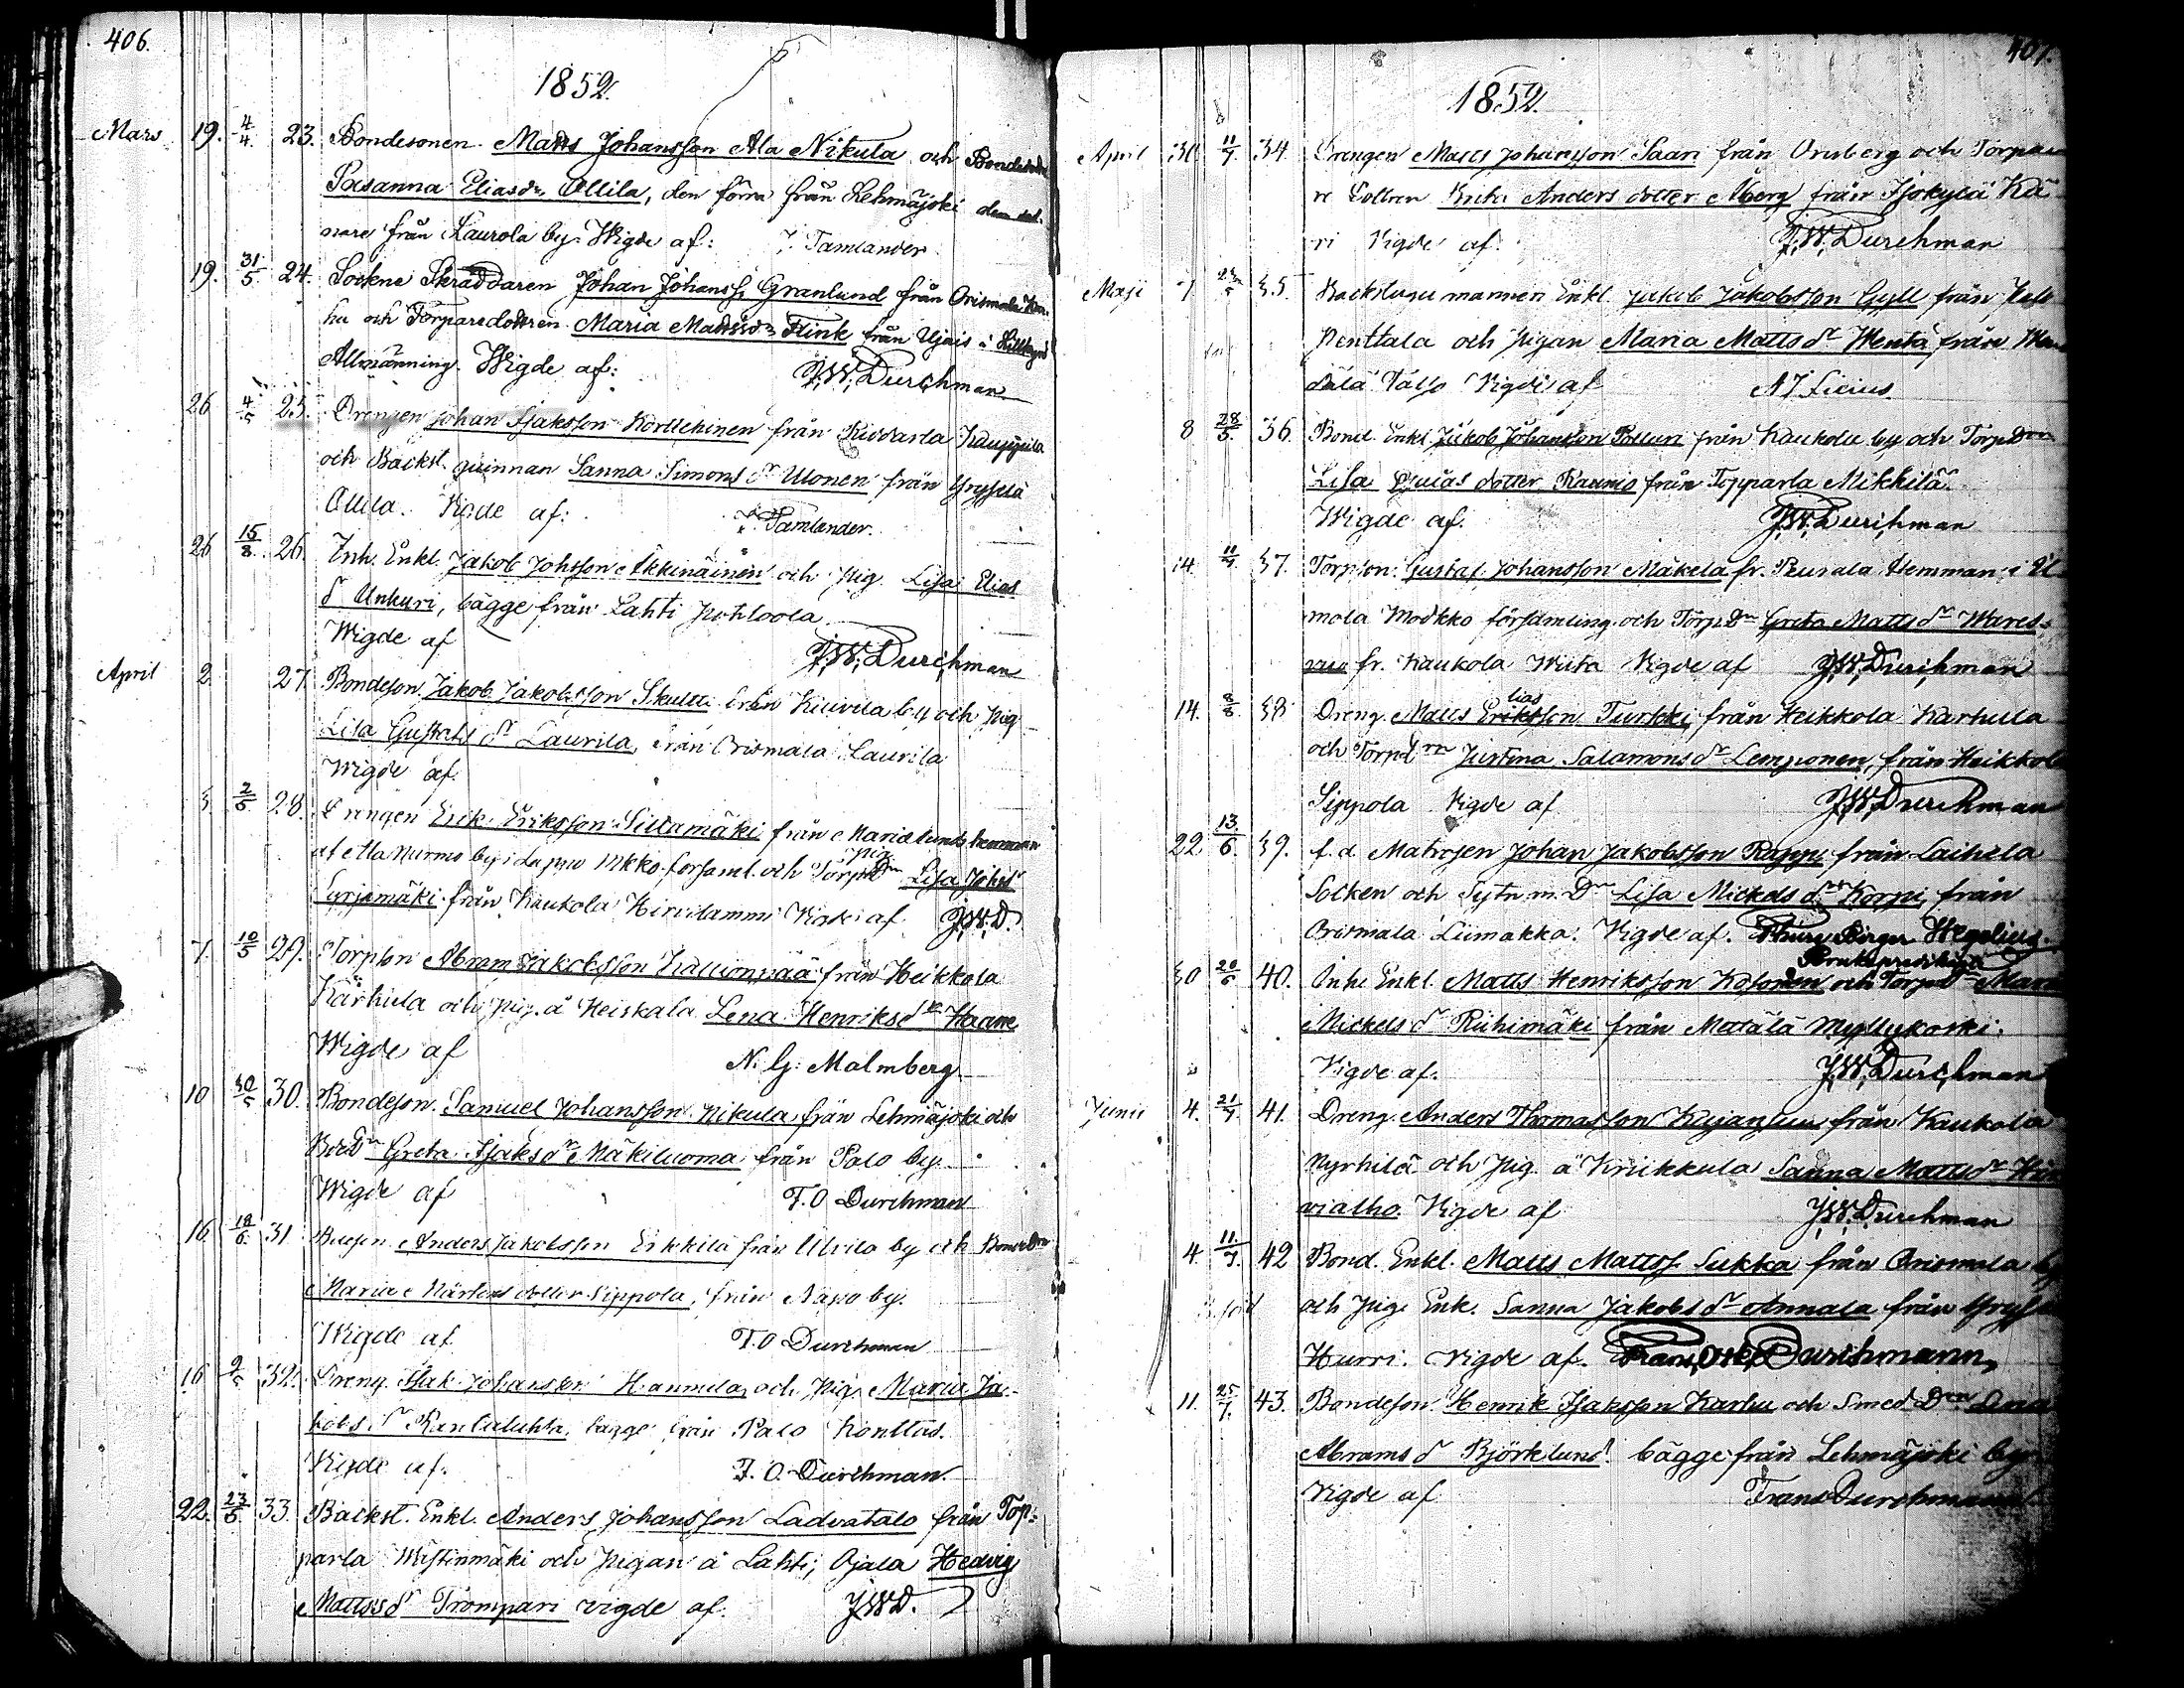 406.
1852.
Mars 19. 4/4. 23. Bondesonen Matts Johansson Ala Nikula och Bondedodr
Susanna Eliasdr Ollila, den förra från Lehmäjoki den sed.
nare från Laurola by. Wigde af: J. Tamlander
19. 31/5 24. Sockne Skräddaren Johan Johanss. Granlund från Orismala Kar.
hu och Torparedottren Maria Mattsdr Flink från Ujais i
Allmänning. Wigde af: J.W. Durchman
26 4/5 25. Drengen Johan Isaksson Korttehinen från Kuddarla Kauppila
och Backst. quinnan Sanna Simons dr Ulonen från Yryselä
Ollila. Vigde af: J. Tamlander.
26 15/8. 26. Inh. Enkl. Jakob Johsson Äkkinäinen och Pig. Lisa Elias
dr Unkuri, bägge från Lahti Pohtoola.
Wigde af J.W. Durchman
April 2. 27. Bondeson Jakob Jakobsson Skultti från Kiuvila by och Pig
Lisa Gustafs dr Laurila, från Orismala Laurila
Wigde af.
3. 2/5 28. Drengen Erik Eriksson Sillamäki från Marielunds hemman
af Ala Nurmo by i Lappo Mkko. forsaml. och Torp pig Dn Lisa Johsdr
Syrjämäki från Kaukola Hirvilammi Vigde af J.W.D.
7. 10/5 29. Torpson Abram Jakobsson Kallionpää från Heikkola
Karhula och Pig. å Heiskala Lena Henriks dr Haane
Wigde af N. G. Malmberg
10 30/5 30. Bondeson. Samuel Johansson Nikula från Lehmäjoki och
Bond Dn Greta Isaks dr Mäkiluoma från Palo by.
Wigde af F. O Durchman
16 31 Anders Jakobsson Erkkilä från Ulvila by och Bonde Dn
Maria Mårtens dotter Sippola, från Napo by.
Wigde af F. O Durchman
16 2/5 32. Dreng. Isak Johansson Hannula, och Pig. Maria Ja-
kobs dr Rantaluhta, bägge från Palo Konttas.
Vigde af. F. O. Durchman.
22. 23/5. 33. Backst. Enkl. Anders Johansson Ladvatalo från Top=
parla Westinmäki och Pigan å Lahti, Ojala Hedvig
Mattss dr Trompari vigde af. JWD.
407.
1852.
April 30 11/7. 34 Drengen Matts Johansson Saari från Orisberg och Torpa
re Dottren Anders dotter Åberg från Isokylä Ka-
ri Vigde af. J.W. Durchman
Maji 7 35. Backstugu mannen Enkl. Jakob Jakobsson Gyll från
Penttala och Pigan Maria Matts dr Wenta från
dälä Talso Vigde af A J Licius.
8 28/5. 36. Bond. Enkl. Jakob Johansson Polluri från Kaukola by och Torp Dron
Lisa dotter Kaunio från Topparla Mikkilä.
Wigde af. J.W. Durchman
14. 11/7 37. Torpson Gustaf Johansson Mäkelä fr. Peurala Hemman i Il
mola Modkko församling och Torp. Dn Greta Matts dr Wares.
fr. Kaukola Wiita Vigde af J.W. Durchman
14. 8/8. 38 Dreng. Matts Eriksson lias Turkki från Heikkola Karhula
och Torpd rn Justina Salamons dr Lemponen, från Heikkol
Sippola Vigde af J.W. Durchman
22. 13/6. 39. f. d. Matrosen Johan Jakobsson Rapp från Laihela
Socken och Sytn. m. Dn Lisa Mickels dr Korpi från
Orismala Liimakka. Vigde af. Thure Birger Hegelius.
Brukspredikant
30 20/6 40. Inh. Enkl. Matts Henriksson Kosonen och Torp Dn Mari
Mickels dr Riihimäki från Matälä Myllykoski.
Vigde af. J.W. Durchman
Junii 4. 21/7. 41. Dreng. Anders Thomasson Kujanpuu från Kaukola
Nyrhilä och Pig. å Kriikkula Sanna Matts dr Hir
vialho Vigde af J.W. Durchman
4. 11/7. 42 Bond. Enkl. Matts Mattss. Sukka från Orismala by
och Pig. Enk. Sanna Jakobs dr Annala från Yrys
Hurri. Vigde af. Frans Oskar Durchmann,
11. 25/7. 43. Bondeson. Henrik Isaksson Karhu och Smed Dn
Abrams dr Björklund bägge från Lehmäjoki by
Vigde af Frans Durchmann